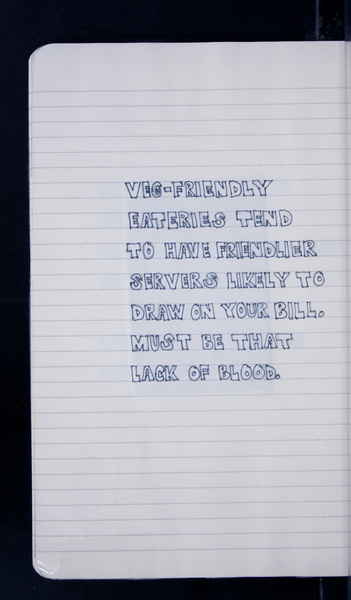 VEG-FRIENDLY
EATERIES TEND
TO HAVE FRIENDLIER
SERVERS LIKELY TO
DRAW ON YOUR BILL.
MUST BE THAT
LACK OF BLOOD.